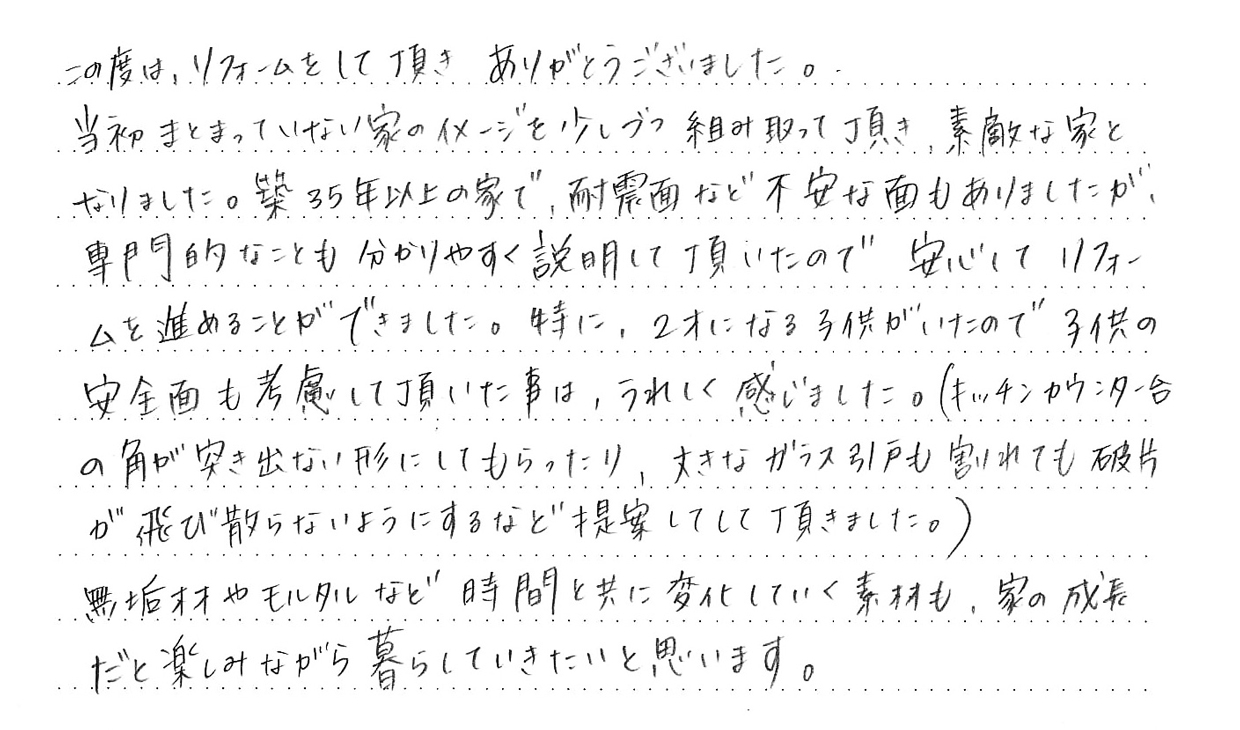 この度は、リフォームをして頂き ありがとうございました。
当初まとまっていない家のイメージを少しづつ組み取って頂き、素敵な家と
なりました。築35年以上の家で、耐震面など不安な面もありましたが、
専門的なことも分かりやすく説明して頂いたので 安心して リフォー
ムを進めることができました。特に、2才になる子供がいたので子供の
安全面も考慮して頂いた事は、うれしく感じました。(キッチンカウンター台
の角が突き出ない形にしてもらったり、大きなガラス引戸も割れても破片
が飛び散らないようにするなど提案してして頂きました。)
無垢材やモルタルなど時間と共に変化していく素材も、家の成長
だと楽しみながら暮らしていきたいと思います。